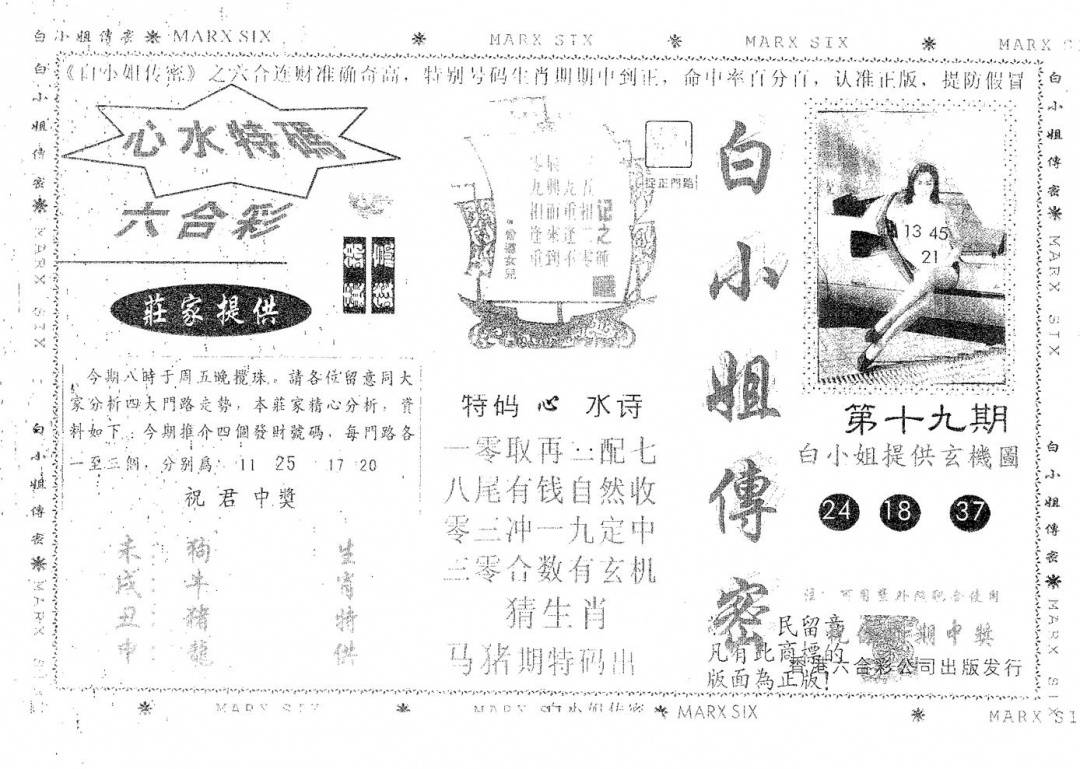 白小姐傳密 ※ MARX SIX ※ MARX SIX ※ MARX SIX ※ MARX S
《白小姐传密》之六合连财准确奇高，特别号码生肖期期中到正，命中率百分百，认准正版，提防假冒
心水特碼
六合彩
莊家提供
今期八時于周五晚攪珠。請各位留意同大
家分析四大門路走勢，本莊家精心分析，資
料如下：今期推介四個發財號碼，每門路各
一至三個，分别爲：11 25 17 20
祝君中獎
未：狗 生
戌：牛 肖
丑：猪 特
申：龍 供
记之
九 九五
相面重相
逢來逢二
重到不零
曾道女兒
特码 心 水诗
一零取再二配七
八尾有钱自然收
零三冲一九定中
三零合数有玄机
猜生肖
马猪期特码出
白小姐傳密
13 45
21
第十九期
白小姐提供玄機圖
24 18 37
注：可
期中獎
民留意
凡有此商標的
版面為正版!
香港六合彩公司出版发行
白小姐傳密 ※ MARX SIX
白小姐傳密 ※ MARX SIX
白小姐傳密 ※ MARX SIX
白小姐傳密 ※ MARX SIX
※ MARX SIX ※ MARX SIX 白小姐传密 ※ MARX SIX ※ MARX SI